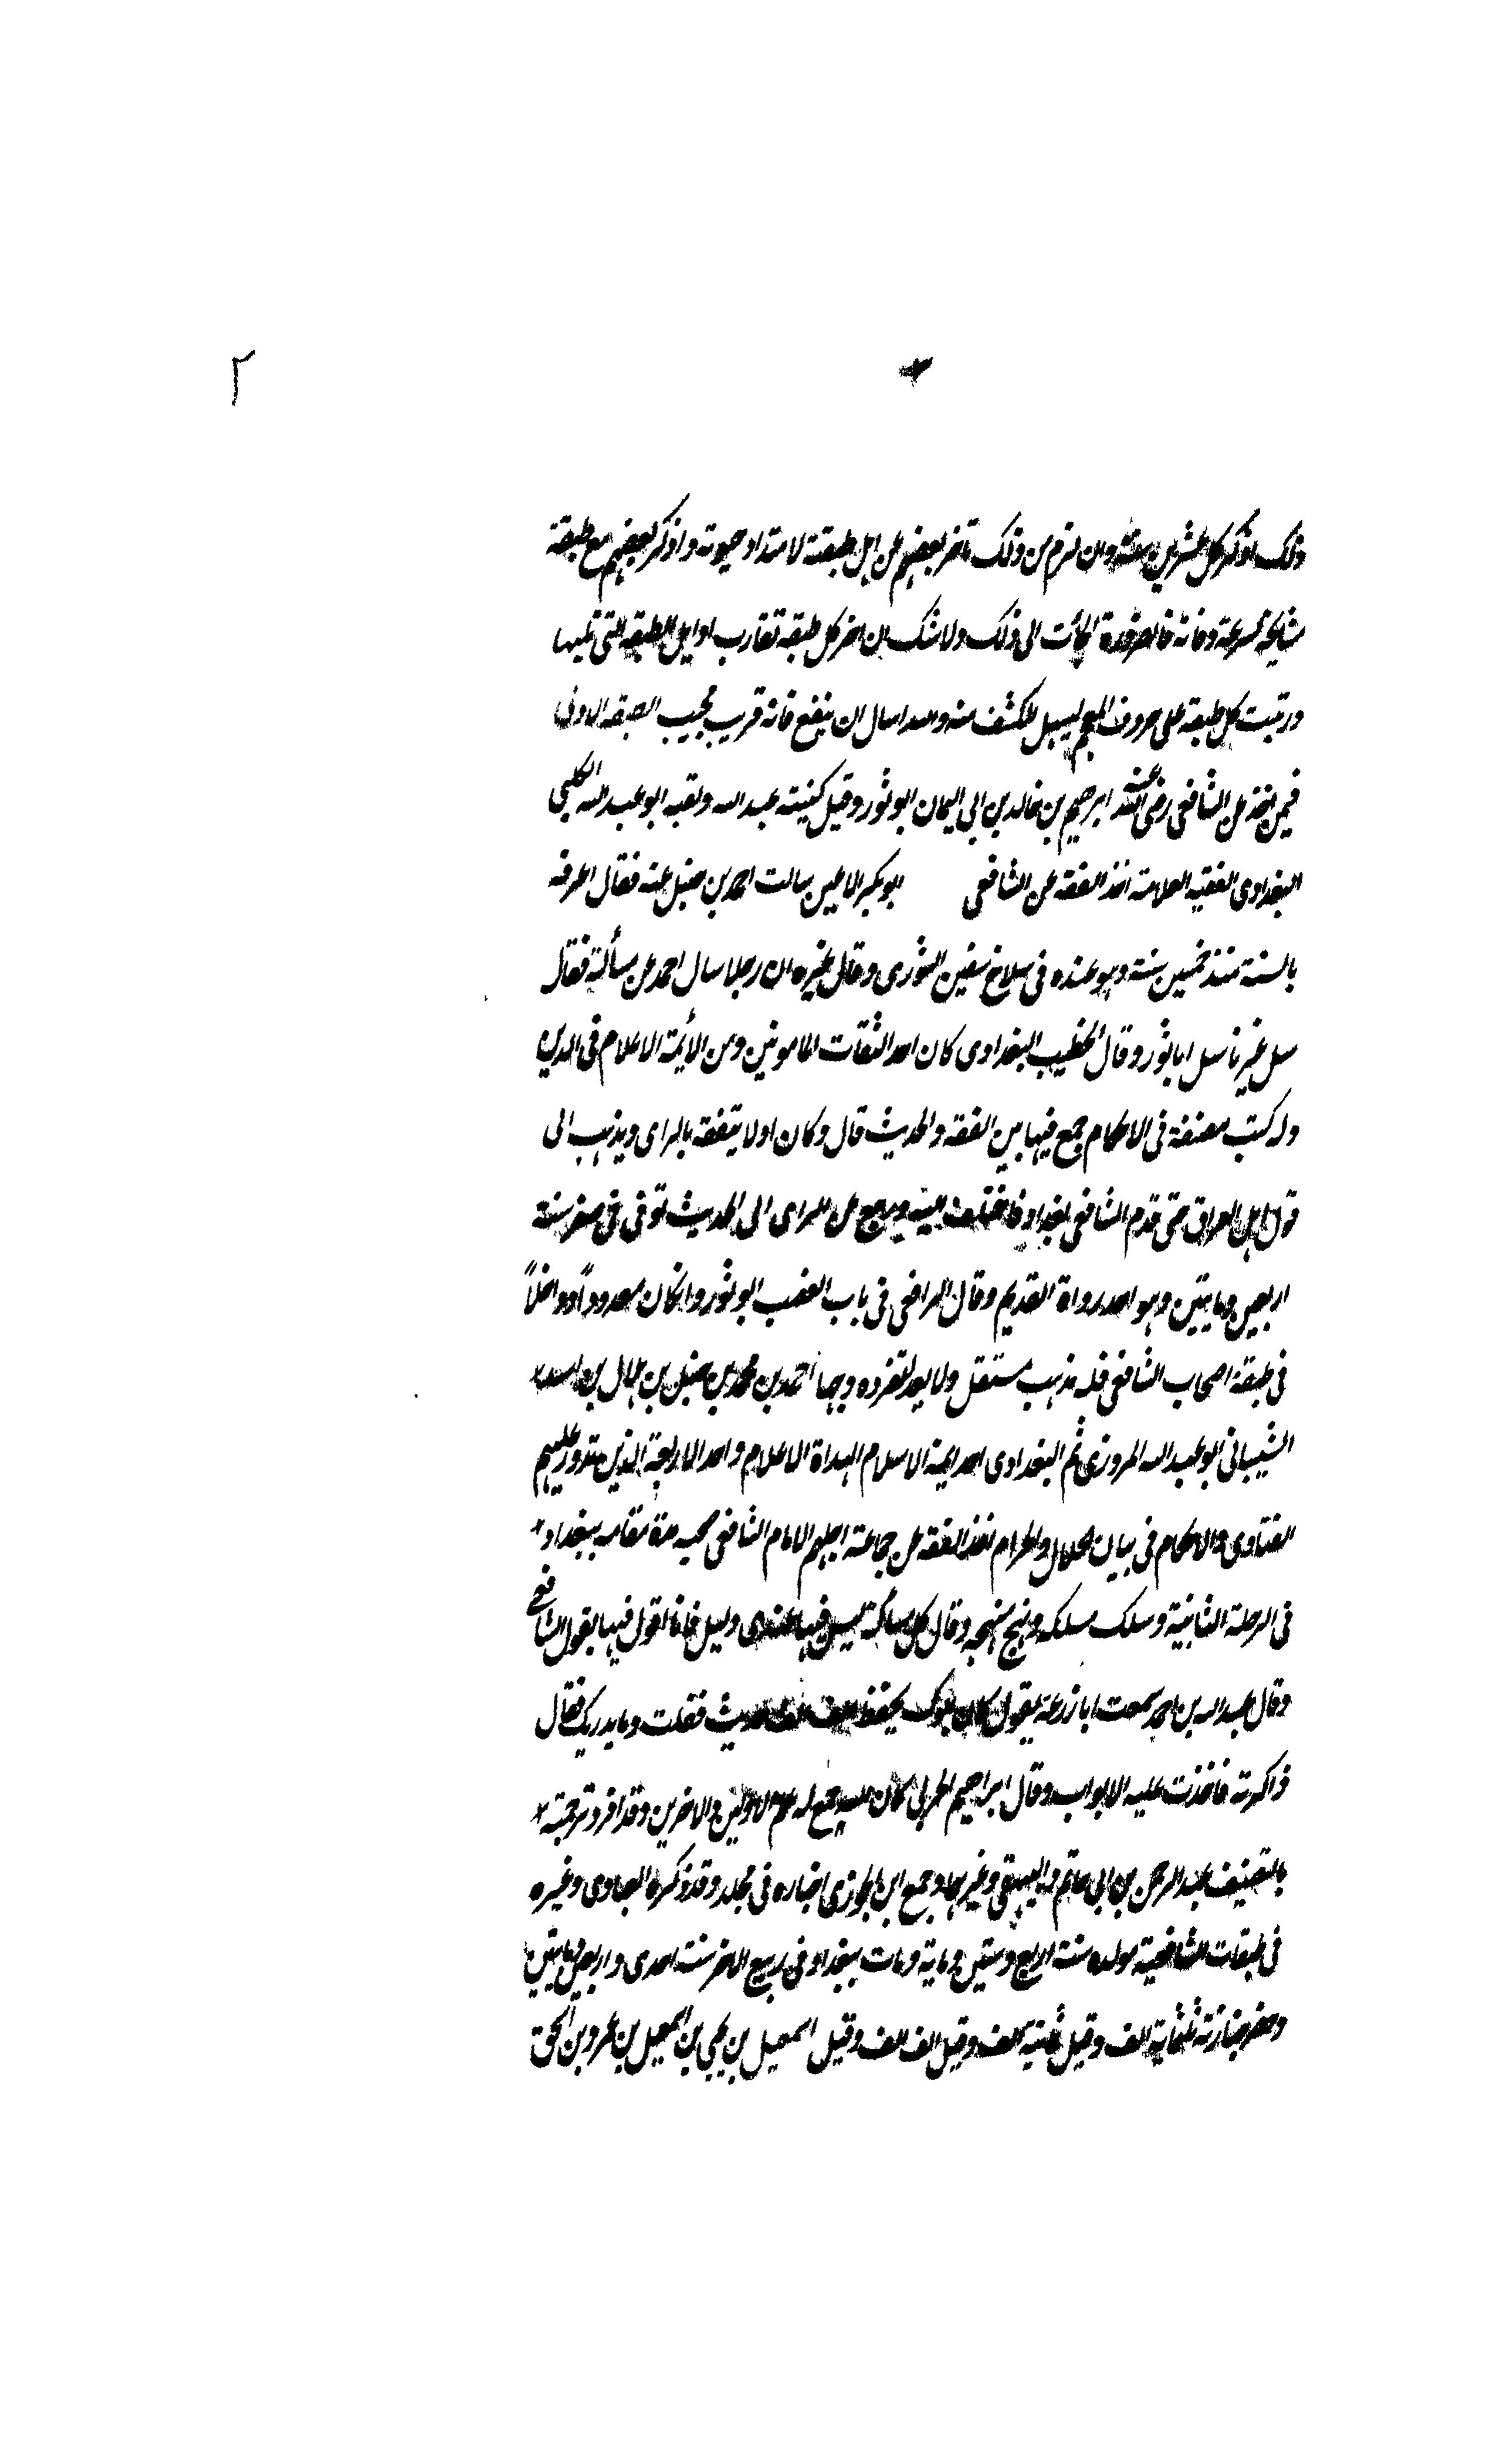 ٢
ذلك اذكر كل عشرين سنة وان لزم من ذلك تاخر بعضهم عن اهل طبقته لامتداد حيوته واذكر بعضهم مع طبقة
مشايخه لسرعة وفاته فالضرورة الجأت الى ذلك ولا شك ان اخر كل طبقه تقارب اوايل الطبقه التى تليها
ورتبت كل طبقه على حروف المعجم ليسهل الكشف منه والله اسال ان ينفع فانه قريب مجيب الطبقه الاولى
فيمن اخذ عن الشافعى رضى الله عنه ابرهيم بن خالد بن ابى اليمان ابو ثور وقيل كنيته عبد الله ولقبه ابو عبد الله الكلبى
البغدادى الفقيه العلامة اخذ الفقه عن الشافعى ابو بكر الاعين سالت احمد بن حنبل عنه فقال اعرفه
بالسنة منذ خمسين سنة وهو عنده فى سلاخ سفين الثورى وقال غيره ان رجلا سال احمد عن مسألة فقال
سل غيرنا سل ابا ثور وقال الخطيب البغدادى كان احد الثقات المامونين ومن الأيمة الاعلام فى الدين
وله كتب مصنفة فى الاحكام جمع فيها بين الفقه والحديث قال وكان اولا يتفقه بالراى ويذهب الى
قول اهل العراق حتى قدم الشافعى بغداد فاختلف اليه ورجع عن الراى الى الحديث توفى فى صفر سنة
اربعين ومايتين وهو احد رواة القديم وقال الرافعى فى باب الغصب ابو ثور وان كان معدوداً وداخلاً
فى طبقة اصحاب الشافعى فله مذهب مستقل ولا يعد تفرده وجها احمد بن محمد بن حنبل بن هلال بن اسد
الشيبانى ابو عبد الله المروزى ثم البغدادى احد ايمة الاسلام الهداة الاعلام واحد الاربعة الذين تدور عليهم
الفتاوى والاحكام فى بيان الحلال والحرام اخذ الفقه عن جماعة اجلهم الامام الشافعى صحبه مدة مقامه ببغداد
فى الرحلة الثانية وسلك مسلكه ونهج منهجه وقال كل مسألة ليس فيها عندى دليل فانا اقول فيها بقول الشافعى
وقال عبد الله بن احمد سمعت ابا زرعة يقول كان ابوك يحفظ الف الف حديث فقلت وما يدريك فقال
ذاكرته فاخذت عليه الابواب وقال ابراهيم الحربى كان الله جمع له علم الاولين والاخرين وقد افرد ترجمته
بالتصنيف عبد الرحمن بن ابى حاتم والبيهقى وغيرهما وجمع ابن الجوزى اخباره فى مجلد وقد ذكره العبادى وغيره
فى طبقات الشافعية مولده سنة اربع وستين وماية ومات ببغداد فى ربيع الاخر سنة احدى واربعين ومايتين
وحضر جنازته ثلثماية الف وقيل ثمنية الف وقيل الف الف وقيل اسمعيل بن يحيى بن اسمعيل بن عمرو بن اسحق